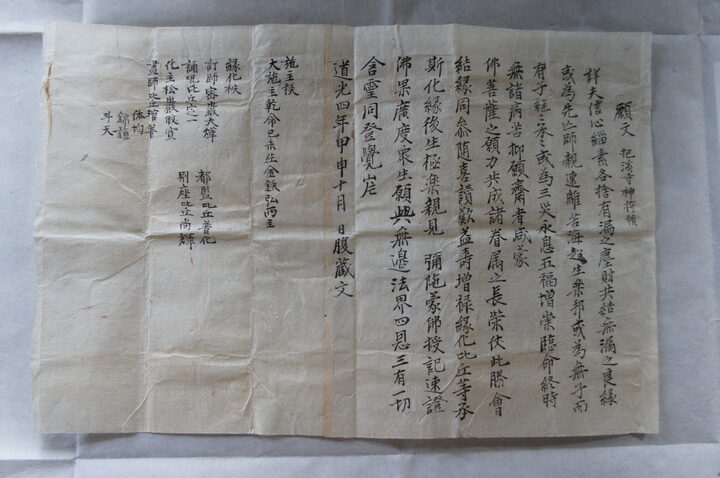 願文 把溪寺神衆幀
詳夫信心緇素各捨有漏之塵財共結無漏之良緣
或為先亡師親速離苦海超生樂邦或為無子而
有子継之承之或為三災永息五福增崇臨命終時
無諸病苦抑願齋者咸蒙
佛菩薩之願力共成諸眷屬之長榮伏此勝會
結緣同叅随喜讃歎益壽增禄緣化比丘等承
斯化緣後生極樂親見 彌陁蒙佛授記速證
佛果廣度衆生願與無邉法界四恩三有一切
含靈同登覺岸
道光四年甲申十月 日腹藏文
施主秩
大施主乾命己未生金鉄弘両主
緣化秩
訂師密嵗大輝
誦呪比丘之一
化主松巖敗宣
畵師比丘琯善
体均
錦謙
斗天
都監比丘普化
別座比丘尚輝